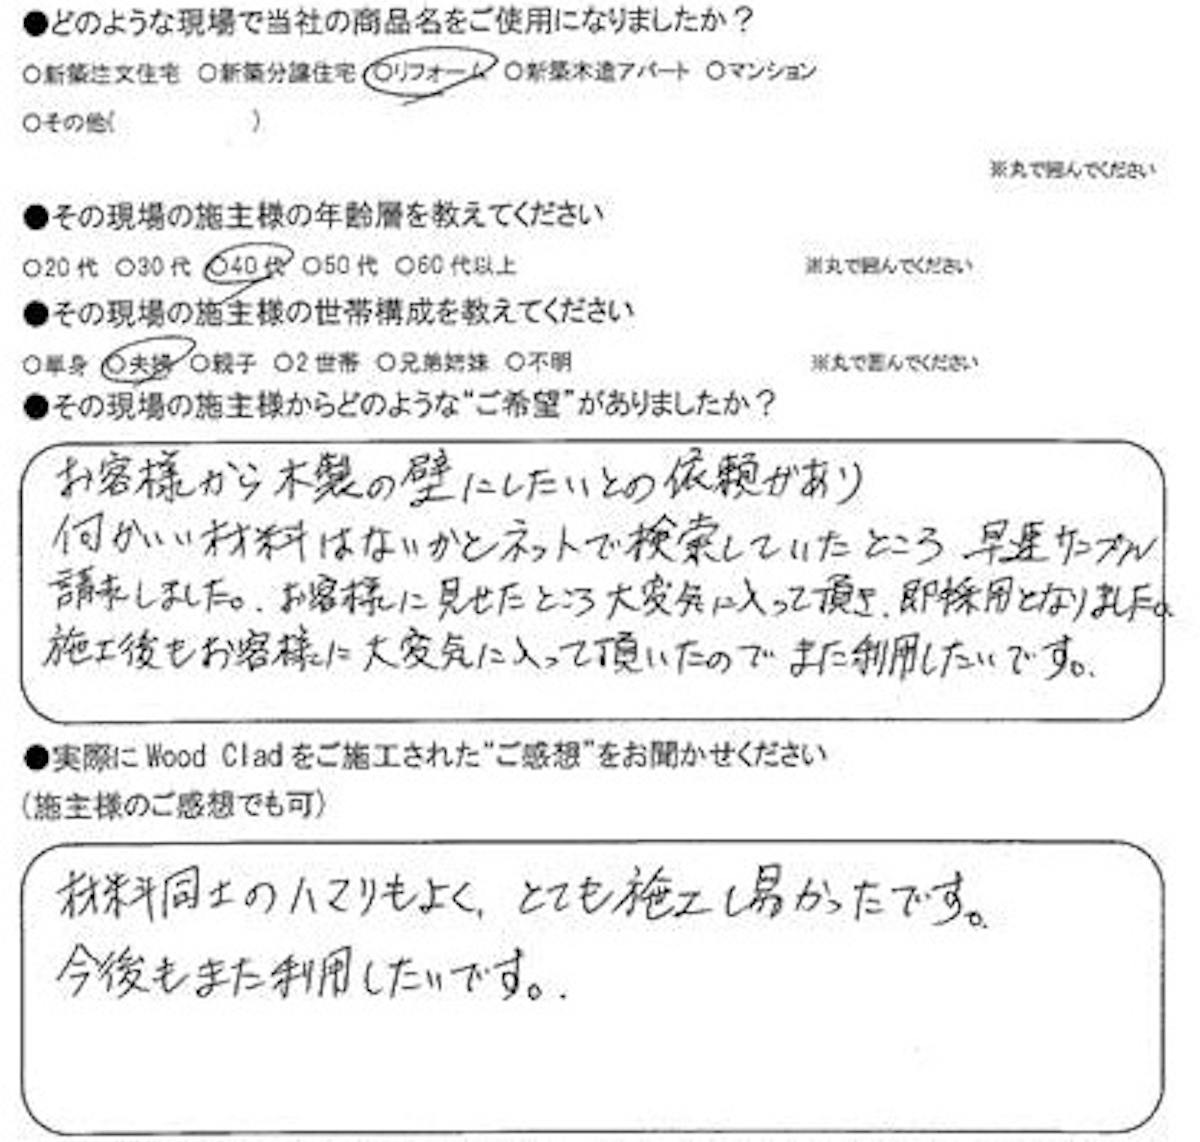 ●どのような現場で当社の商品名をご使用になりましたか？
○新築注文住宅 ○新築分譲住宅 ○リフォーム ○新築木造アパート ○マンション
○その他( )
※丸で囲んでください
●その現場の施主様の年齢層を教えてください
○20代 ○30代 ○40代 ○50代 ○60代以上 ※丸で囲んでください
●その現場の施主様の世帯構成を教えてください
○単身 ○夫婦 ○親子 ○2世帯 ○兄弟姉妹 ○不明 ※丸で囲んでください
●その現場の施主様からどのような“ご希望”がありましたか？
お客様から木製の壁にしたいとの依頼があり
何かいい材料はないかとネットで検索していたところ 早速サンプル
請求しました。お客様に見せたところ大変気に入って頂き、即採用となりました。
施工後もお客様に大変気に入って頂いたのでまた利用したいです。
●実際にWood Cladをご施工された“ご感想”をお聞かせください
(施主様のご感想でも可)
材料同士のハマリもよく、とても施工し易かったです。
今後もまた利用したいです。